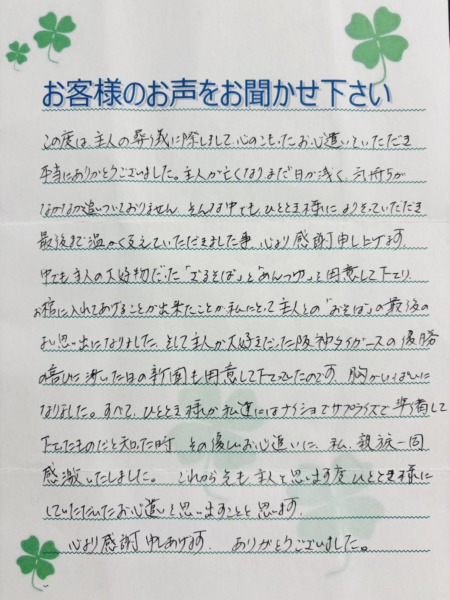 お客様のお声をお聞かせ下さい
この度は、主人の葬儀に際しまして、心のこもったお心遣いいただき
本当にありがとうございました。主人が亡くなりまだ日が浅く、気持ちが
なかなか追いついておりません。そんな中でも、ひととき様によりそっていただき
最後まで温かく支えていただきました事、心より感謝申し上げます
中でも主人の大好物だった「ざるそば」と「めんつゆ」を用意して下さり、
お棺に入れてあげることが出来たことが私にとって主人との「おそば」の最後の
よい思い出になりました、そして主人が大好きだった阪神タイガースの優勝
の喜びに沸いた日の新聞も用意して下さっていたのです、胸がいっぱいに
なりました。すべて、ひととき様が私達にはナイショでサプライズで準備して
下さったものだと知った時、その優しいお心遣いに、私、親族一同
感激いたしました。これからも主人を思い出す度ひととき様に
していただいたお心遣いを思い出すことと思います。
心より感謝申しあげます。ありがとうございました。